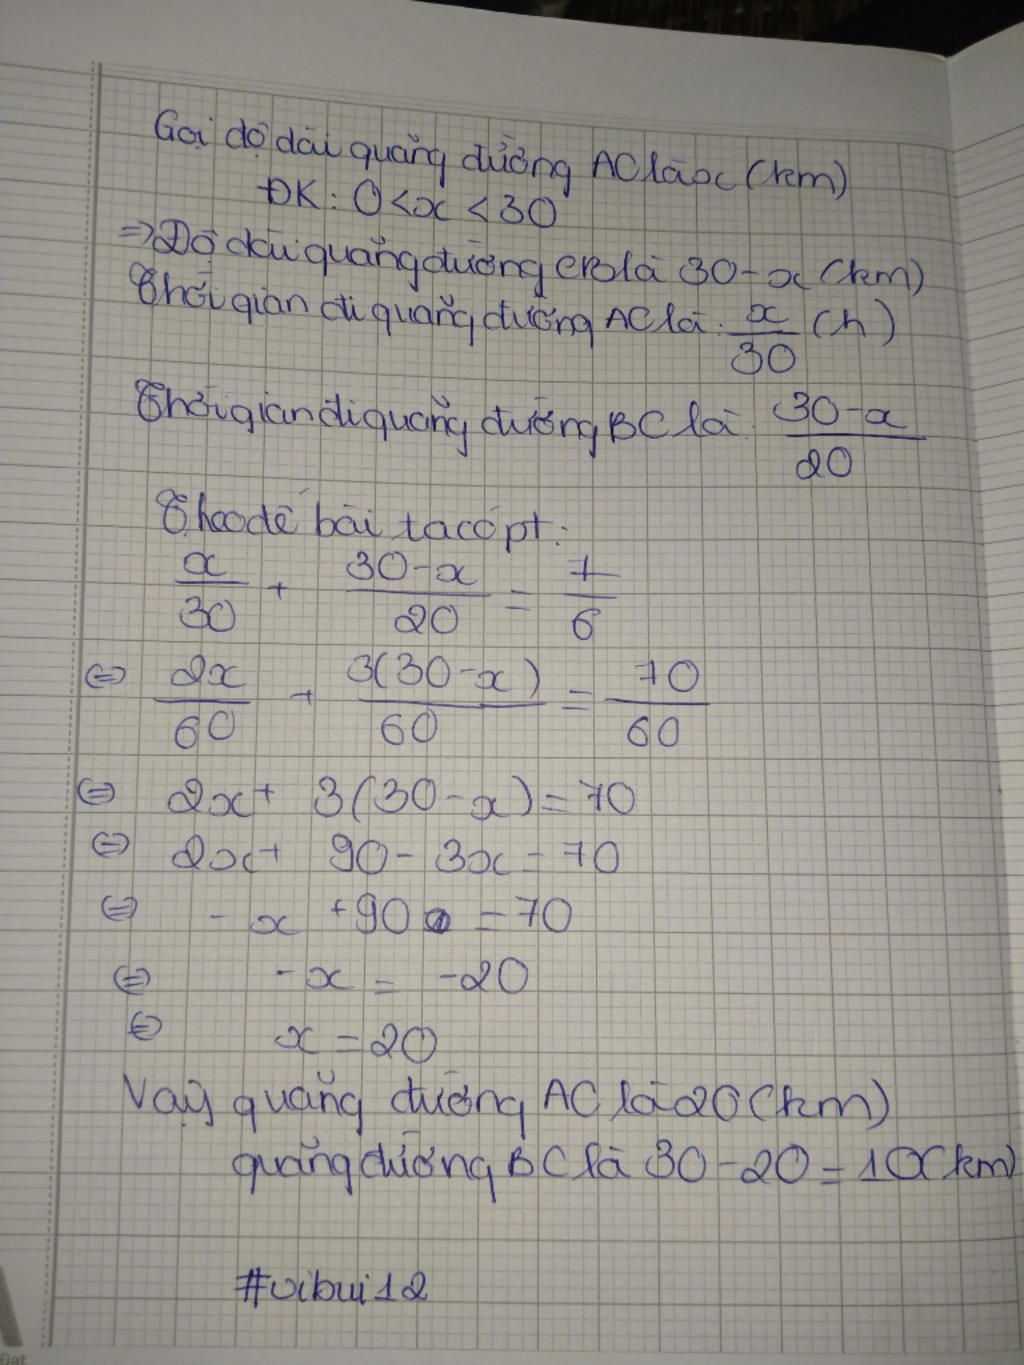 Gọi độ dài quãng đường AC là x (km)
ĐK: 0 < x < 30
⇒ Độ dài quãng đường CB là 30 - x (km)
Thời gian đi quãng đường AC là: x/30 (h)
Thời gian đi quãng đường BC là: (30 - x)/20
Theo đề bài ta có pt:
x/30 + (30 - x)/20 = 7/6
⇔ 2x/60 + 3(30 - x)/60 = 70/60
⇔ 2x + 3(30 - x) = 70
⇔ 2x + 90 - 3x = 70
⇔ - x + 90 = 70
⇔ - x = -20
⇔ x = 20
Vậy quãng đường AC là 20 (km)
quãng đường BC là 30 - 20 = 10 (km)
#vibui12
Đạt